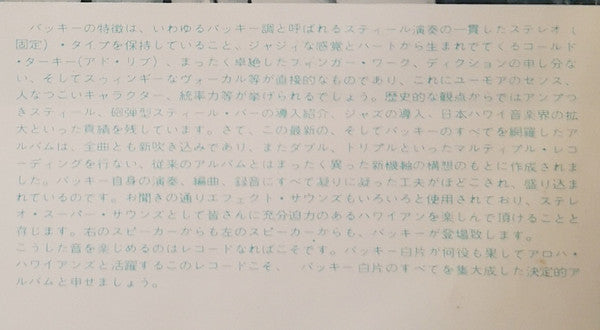 バッキーの特徴は、いわゆるバッキー調と呼ばれるスティール演奏の一貫したステレオ（
固定）・タイプを保持していること、ジャジィな感覚とハートから生まれでてくるコールド
・ターキー(アド・リブ）、まったく卓絶したフィンガー・ワーク、ディクションの申し分な
い、そしてスゥィンギーなヴォーカル等が直接的なものであり、これにユーモアのセンス、
人なつこいキャラクター、統率力等が挙げられるでしょう。歴史的な観点からではアンプつ
きスティール、砲弾型スティール・バーの導入紹介、ジャズの導入、日本ハワイ音楽界の拡
大といった貢績を残しています。さて、この最新の、そしてバッキーのすべてを網羅したア
ルバムは、全曲とも新吹き込みであり、またダブル、トリプルといったマルティプル・レコ
ーディングを行ない、従来のアルバムとはまったく異った新機軸の構想のもとに作成されま
した。バッキー自身の演奏、編曲、録音にすべて凝りに凝った工夫がほどこされ、盛り込ま
れているのです。お聞きの通りエフェクト・サウンズもいろいろと使用されており、ステレ
オ・スーパー・サウンズとして皆さんに充分迫力のあるハワイアンを楽しんで頂けることと
存じます。右のスピーカーからも左のスピーカーからも、バッキーが登場致します。
こうした音を楽しめるのはレコードなればこそです。バッキー白片が何役も果してアロハ・
ハワイアンズと活躍するこのレコードこそ、　バッキー白片のすべてを集大成した決定的ア
ルバムと申せましょう。